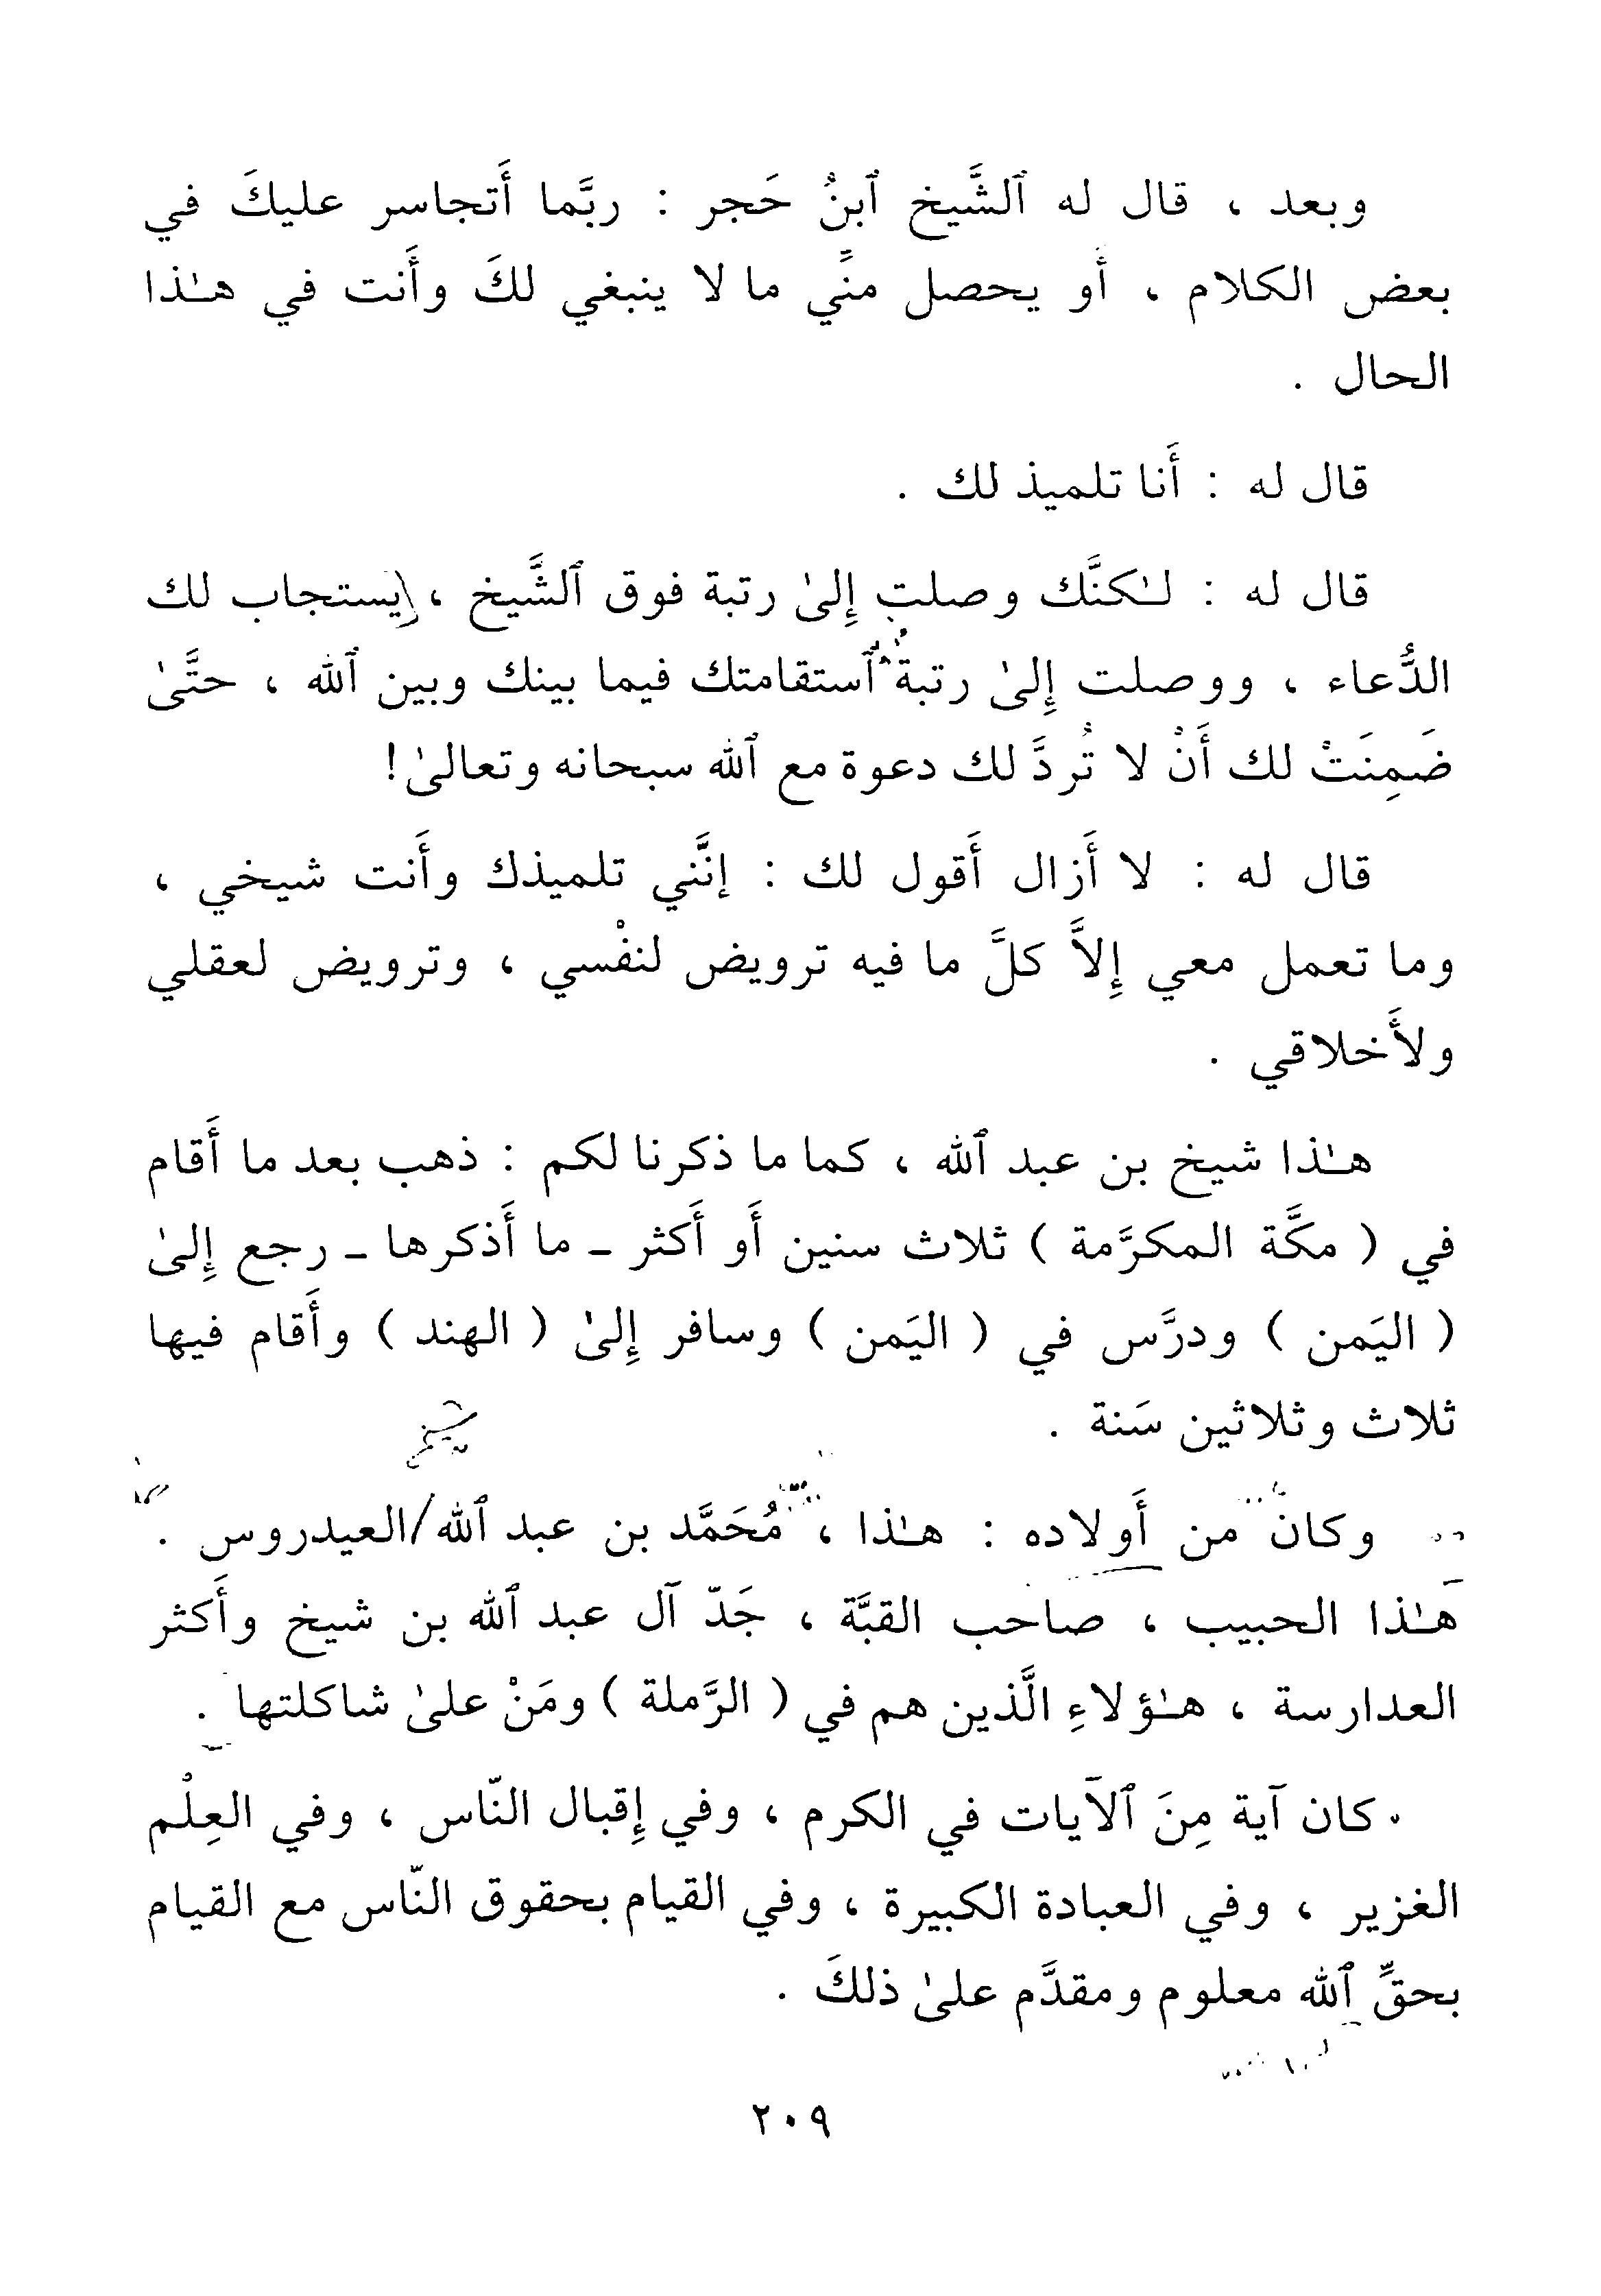 وبعد ، قال له ٱلشَّيخ ٱبنُ حَجر : ربَّما أَتجاسر عليكَ في
بعض الكلام ، أَو يحصل منِّي ما لا ينبغي لكَ وأَنت في هـٰذا
الحال .
قال له : أَنا تلميذ لك .
قال له : لـٰكنَّك وصلت إِلىٰ رتبة فوق ٱلشَّيخ ، يستجاب لك
الدُّعاء ، ووصلت إِلىٰ رتبة ٱستقامتك فيما بينك وبين ٱلله ، حتَّىٰ
ضَمِنَتْ لك أَنْ لا تُردَّ لك دعوة مع ٱلله سبحانه وتعالىٰ!
قال له : لا أَزال أَقول لك : إنَّني تلميذك وأَنت شيخي ،
وما تعمل معي إِلاَّ كلَّ ما فيه ترويض لنفْسي ، وترويض لعقلي
ولأَخلاقي .
هـٰذا شيخ بن عبد ٱلله ، كما ما ذكرنا لكم : ذهب بعد ما أَقام
في ( مكَّة المكرَّمة ) ثلاث سنين أَو أَكثر ـ ما أَذكرها ـ رجع إِلىٰ
( اليَمن ) ودرَّس في ( اليَمن ) وسافر إِلىٰ ( الهند ) وأَقام فيها
ثلاث وثلاثين سَنة .
شيخ
وكان من أَولاده : هـٰذا ، مُحَمَّد بن عبد ٱلله/العيدروس .
هـٰذا الحبيب ، صاحب القبَّة ، جَدّ آل عبد ٱلله بن شيخ وأَكثر
العدارسة ، هـٰؤلاءِ الَّذين هم في ( الرَّملة ) ومَنْ علىٰ شاكلتها .
كان آية مِنَ ٱلآيات في الكرم ، وفي إِقبال النّاس ، وفي العِلْم
الغزير ، وفي العبادة الكبيرة ، وفي القيام بحقوق النّاس مع القيام
بحقِّ ٱلله معلوم ومقدَّم علىٰ ذلكَ .
٢٠٩